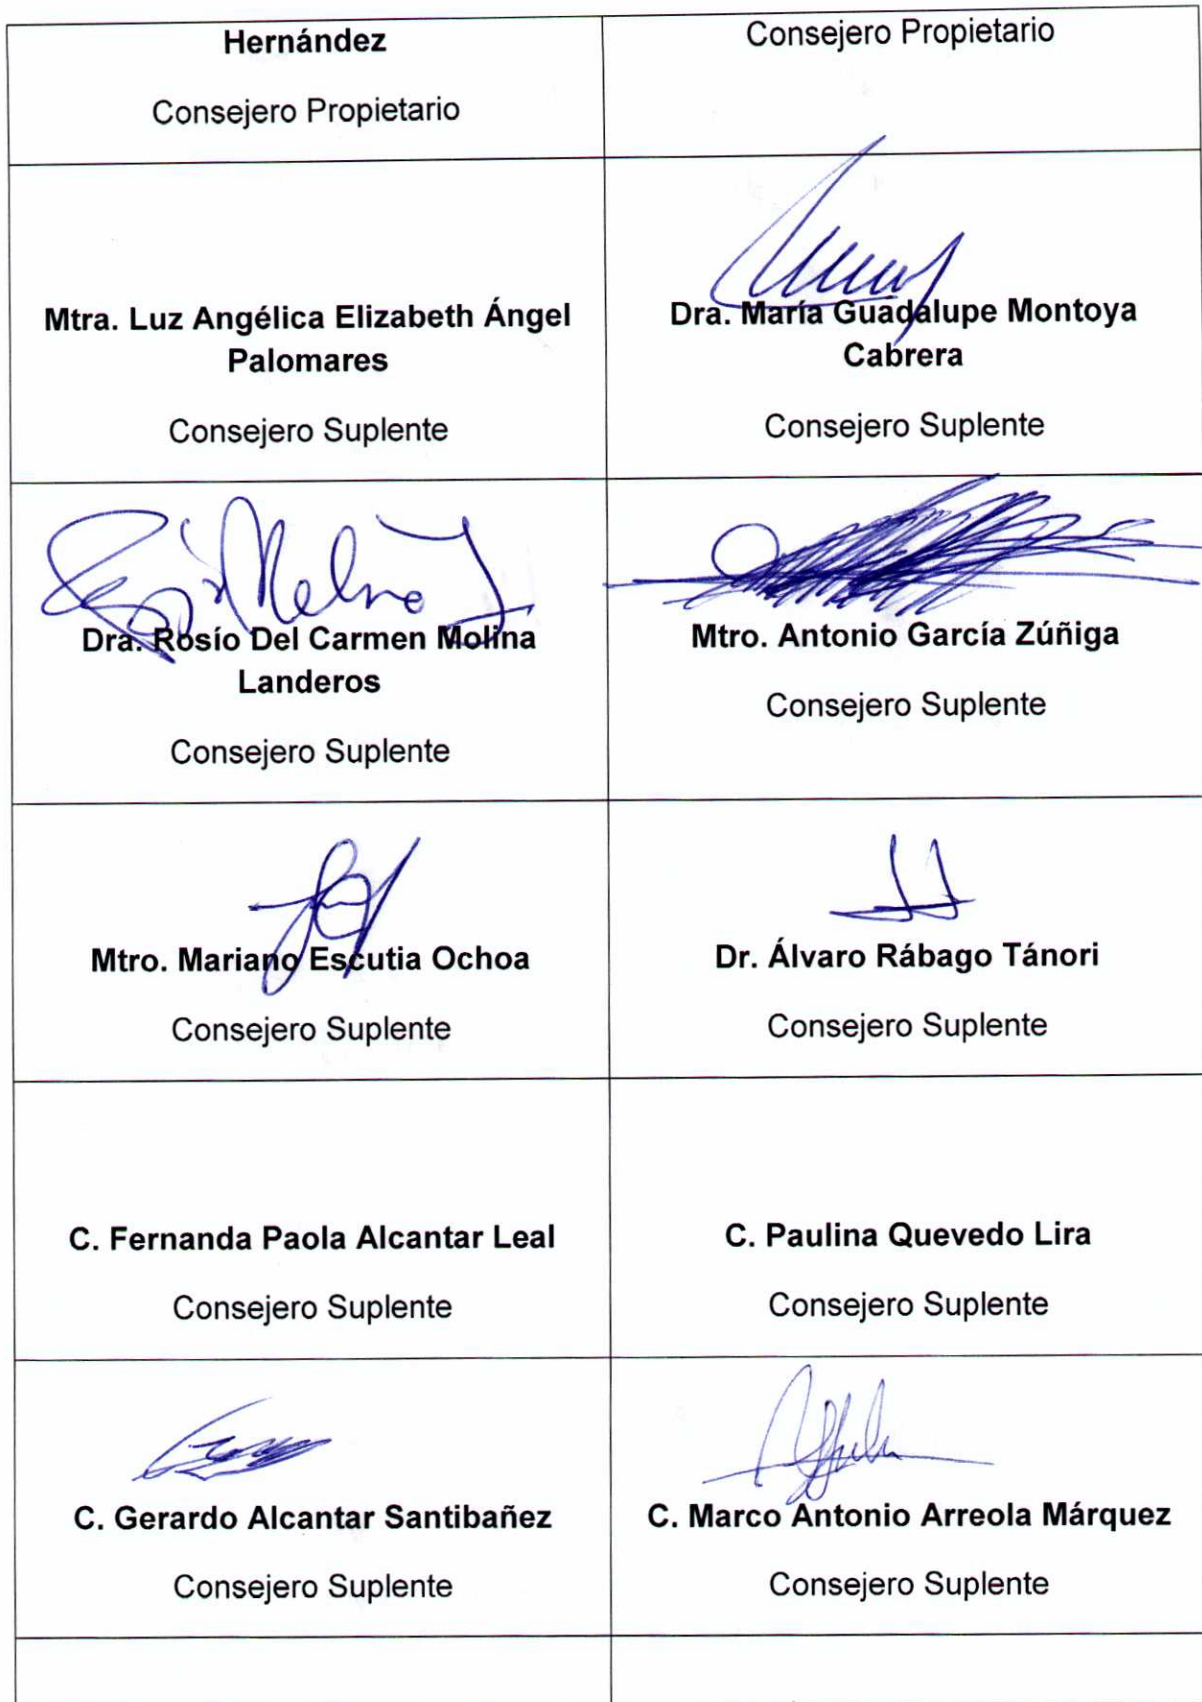 Hernández
Consejero Propietario
Consejero Propietario
Mtra. Luz Angélica Elizabeth Ángel
Palomares
Consejero Suplente
Dra. María Guadalupe Montoya
Cabrera
Consejero Suplente
Dra. Rosío Del Carmen Molina
Landeros
Consejero Suplente
Mtro. Antonio García Zúñiga
Consejero Suplente
Mtro. Mariano Escutia Ochoa
Consejero Suplente
Dr. Álvaro Rábago Tánori
Consejero Suplente
C. Fernanda Paola Alcantar Leal
Consejero Suplente
C. Paulina Quevedo Lira
Consejero Suplente
C. Gerardo Alcantar Santibañez
Consejero Suplente
C. Marco Antonio Arreola Márquez
Consejero Suplente